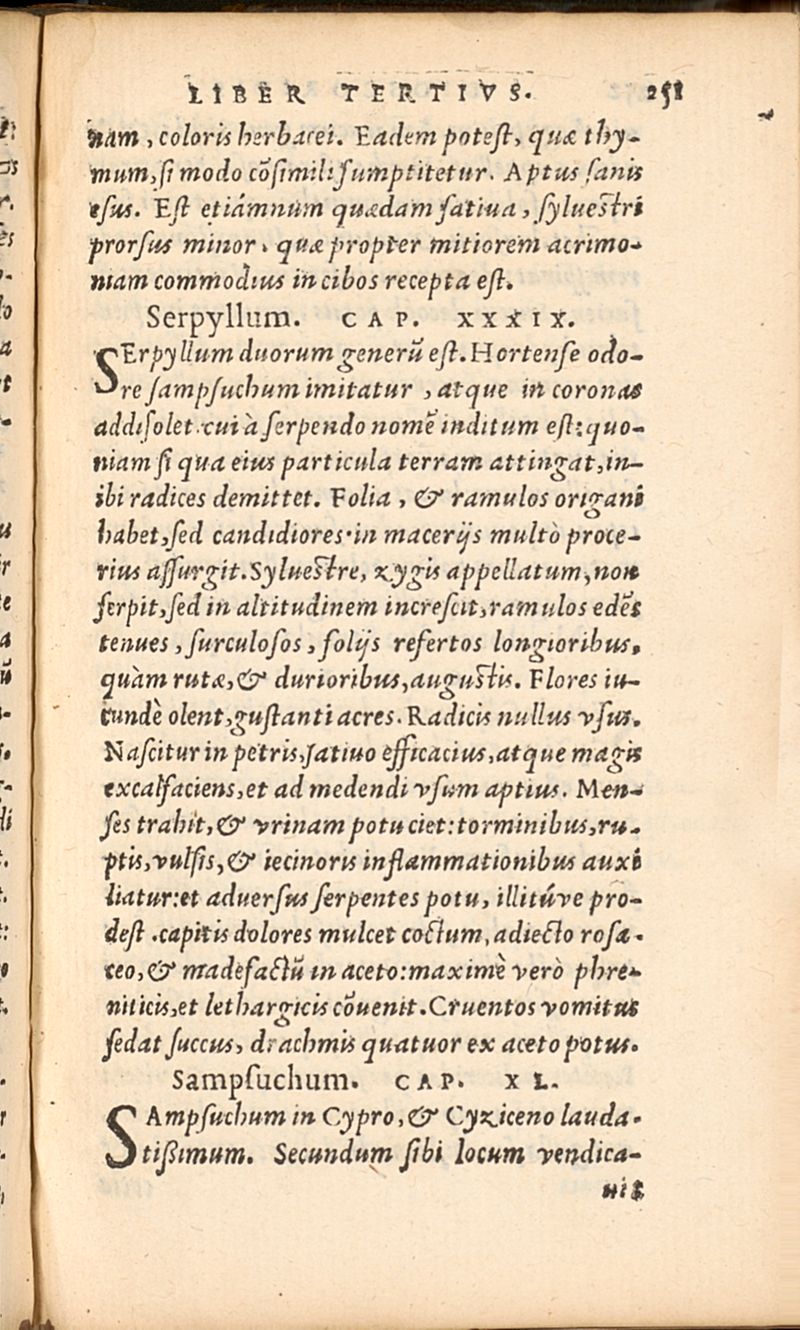 LIBER TERTIVS. 251
nam, coloris herbacei. Eadem potest, quæ thy-
mum, si modo cõsimili sumptitetur. Aptus sanis
esus. Est etiámnum quædam satiua, syluestri
prorsus minor, quæ propter mitiorem acrimo-
niam commodius in cibos recepta est.
Serpyllum. CAP. XXXIX.
SErpyllum duorum generũ est. Hortense odo-
re sampsuchum imitatur, atque in coronas
addi solet. cui à serpendo nomẽ inditum est: quo-
niam si qua eius particula terram attingat, in-
ibi radices demittet. Folia, & ramulos origani
habet, sed candidiores. in macerijs multò proce-
rius assurgit. Syluestre, zygis appellatum, non
serpit, sed in altitudinem increscit, ramulos edẽs
tenues, surculosos, folijs refertos longioribus,
quàm rutæ, & durioribus, augustis. Flores iu-
cundè olent, gustanti acres. Radicis nullus vsus.
Nascitur in petris, satiuo efficacius, atque magis
excalfaciens, et ad medendi vsum aptius. Men-
ses trahit, & vrinam potu ciet: torminibus, ru-
ptis, vulsis, & iecinoris inflammationibus auxi
liatur: et aduersus serpentes potu, illitúve pro-
dest. capitis dolores mulcet coctum, adiecto rosa-
ceo, & madefactũ in aceto: maximè verò phre-
niticis, et lethargicis cõuenit. Cruentos vomitus
sedat succus, drachmis quatuor ex aceto potus.
Sampsuchum. CAP. XL.
SAmpsuchum in Cypro, & Cyziceno lauda-
tißimum. Secundum sibi locum vendica-
uit